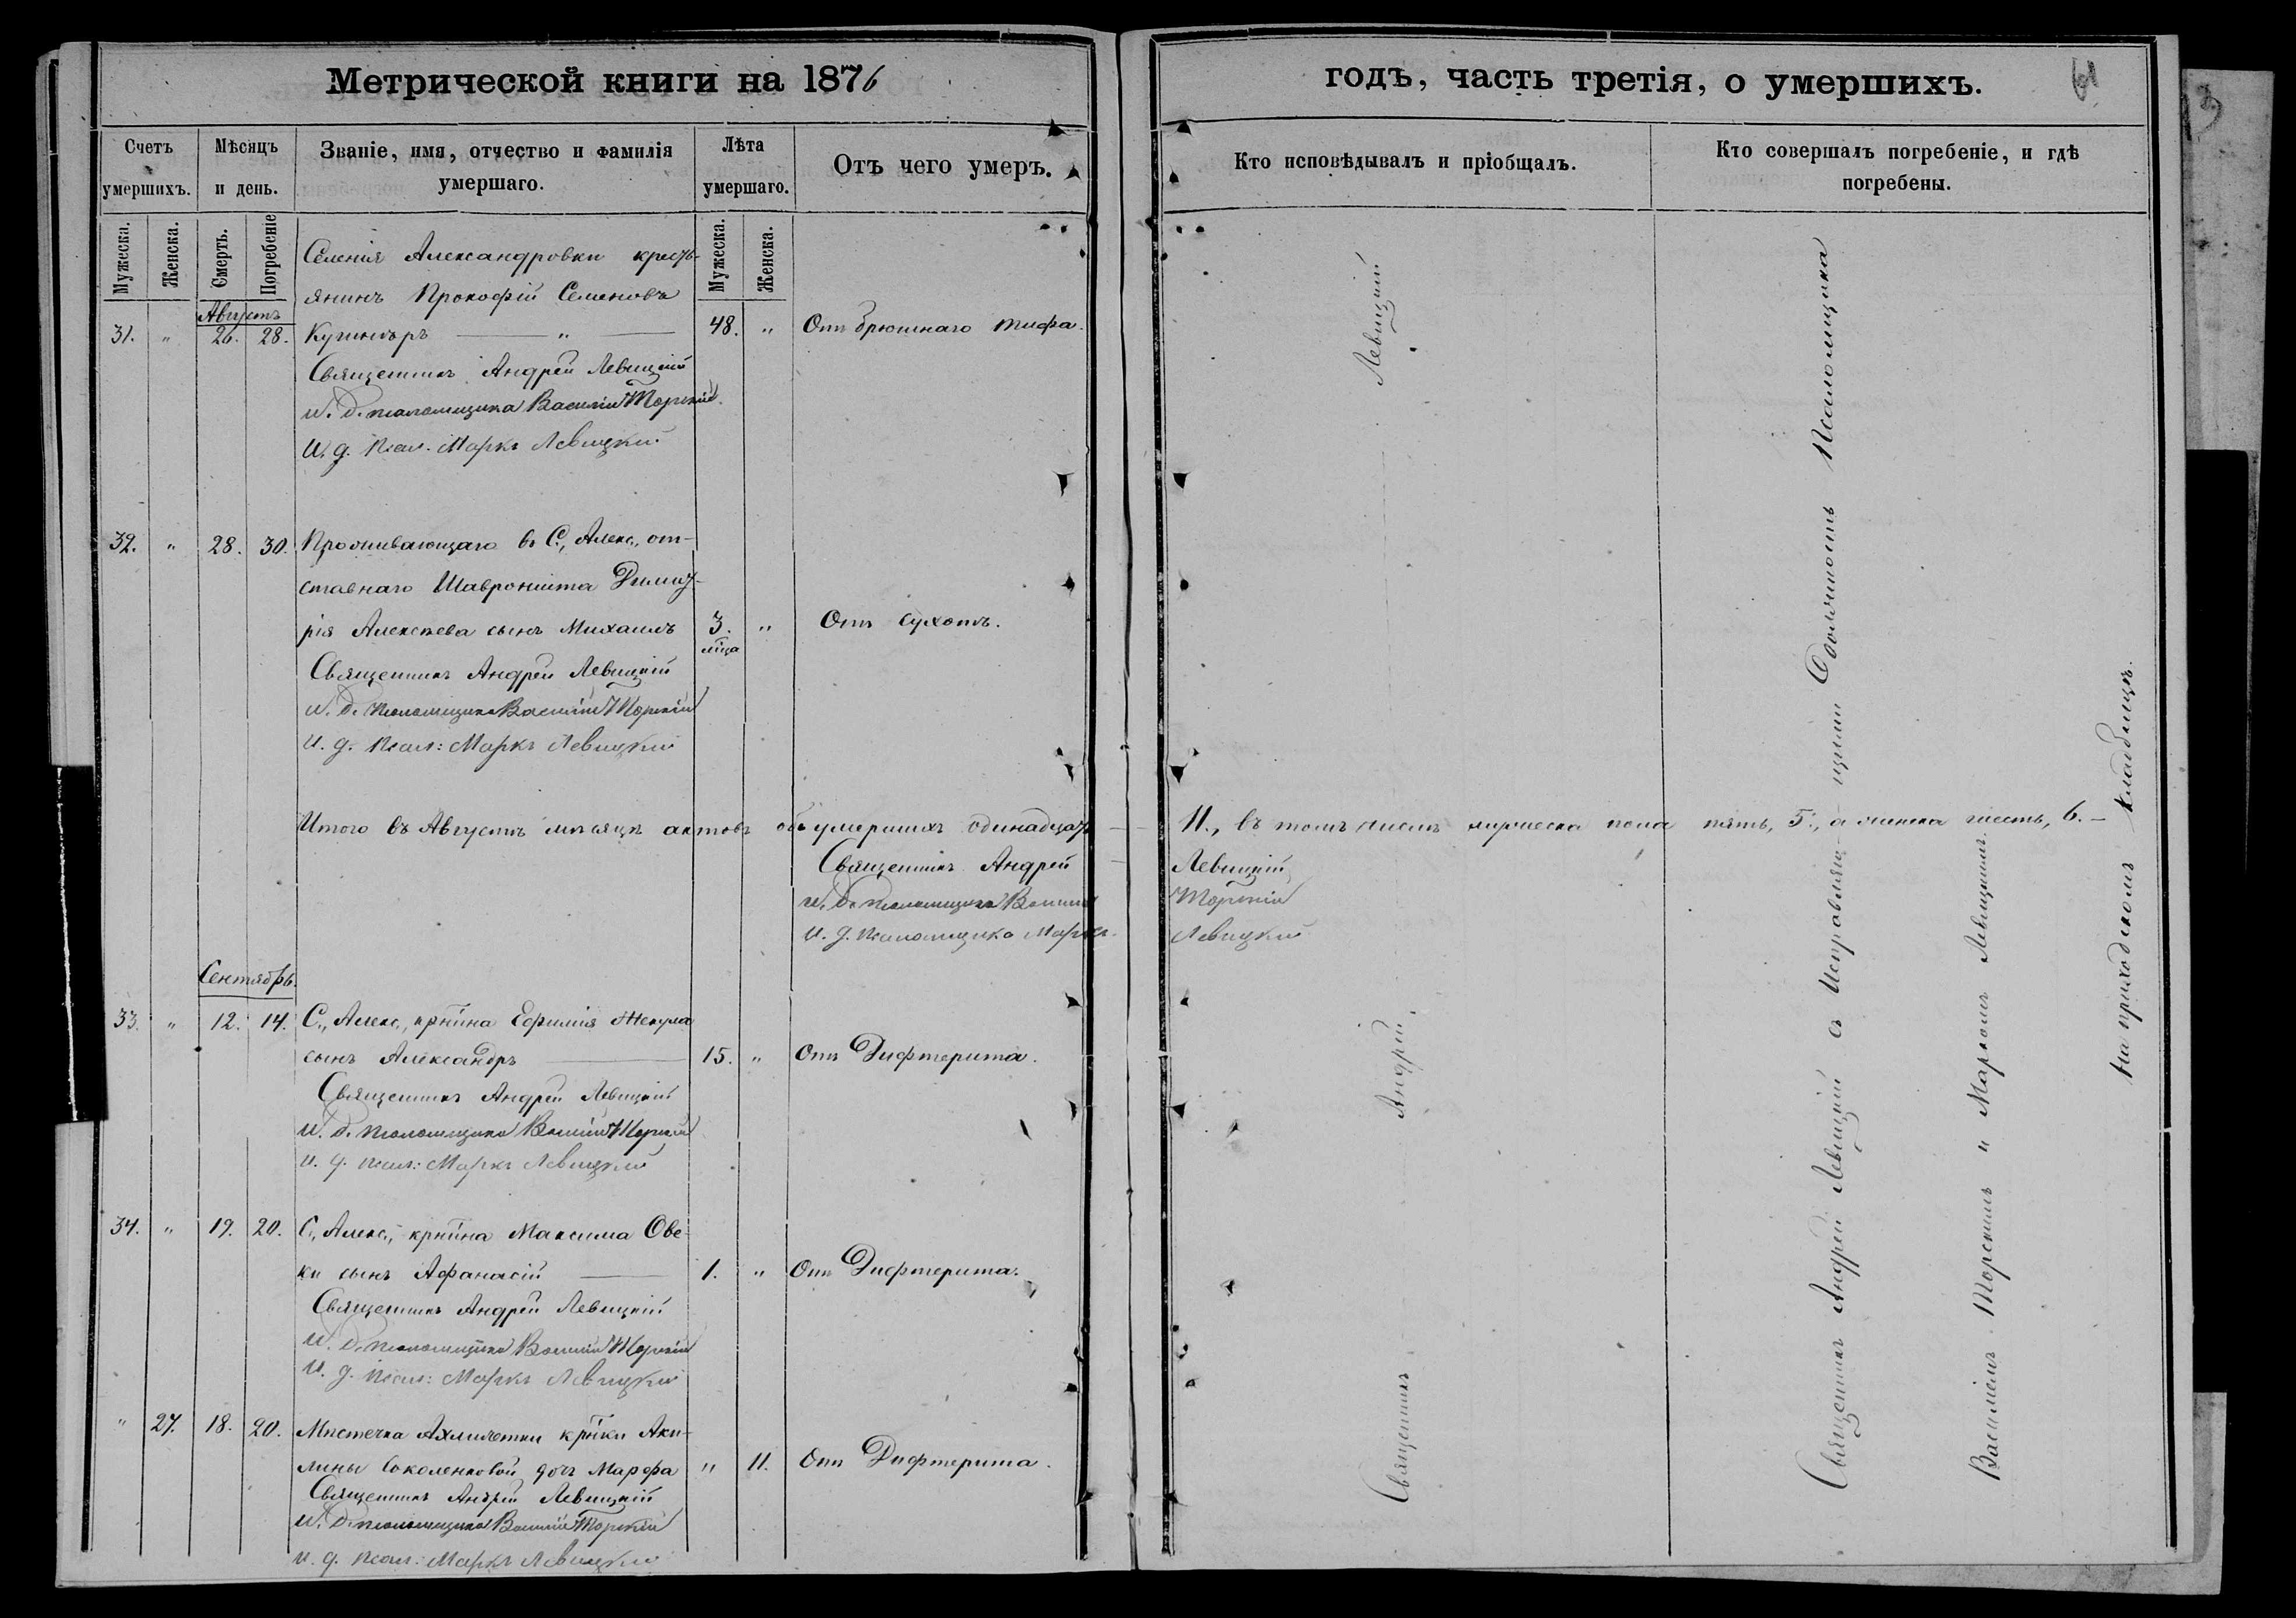 Метрической книги на 1876
годъ, часть третія, о умершихъ.
61
Счетъ умершихъ.
Мѣсяцъ и день.
Званіе, имя, отчество и фамилія умершаго.
Лѣта умершаго.
Отъ чего умеръ.
Кто исповѣдывалъ и пріобщалъ.
Кто совершалъ погребеніе, и гдѣ погребены.
Мужеска.
Женска.
Смерть.
Погребеніе
Мужеска.
Женска.
Августъ
Селенія Александровки кресть-
янинъ Прокофій Семеновъ
31. " 26. 28. 48. " Отъ брюшнаго тифа.
Священникъ Андрей Левицкій
И. д. псаломщика Василій Торскій
И. д. псал. Маркъ Левицкій
32. " 28. 30. Проживающаго въ С., Алекс., от-
ставнаго Дмит-
рія Алексѣева сынъ Михаилъ 3. мца " Отъ сухотъ.
Священникъ Андрей Левицкій
И. д. псаломщика Василій Торскій
И. д. псал: Маркъ Левицкій
Итого въ Августѣ мѣсяцѣ актовъ объ умершихъ одинадцать 11., въ томъ числѣ мужеска пола пять, 5., а женска шесть, 6.
Священникъ Андрей Левицкій
И. д. псаломщика Василій Торскій
И. д. псаломщика Маркъ Левицкій
Сентябрь.
33. " 12. 14. С., Алекс., крнина Ефимія
сынъ Александръ 15. " Отъ Дифтерита.
Священникъ Андрей Левицкій
И. д. псаломщика Василій Торскій
И. д. псал: Маркъ Левицкій
34. " 19. 20. С., Алекс., крнина Максима Ове-
ки сынъ Афанасій 1. " Отъ Дифтерита.
Священникъ Андрей Левицкій
И. д. псаломщика Василій Торскій
И. д. псал: Маркъ Левицкій
" 27. 18. 20. Мѣстечка Ахмечетки крнки Аки-
лины Соколенковой дочь Марфа " 11. Отъ Дифтерита.
Священникъ Андрей Левицкій
И. д. псаломщика Василій Торскій
И. д. псал: Маркъ Левицкій
Священникъ Андрей Левицкій
Священникъ Андрей Левицкій съ Исправляю-щими Должность Псаломщика
Василіемъ Торскимъ и Маркомъ Левицкимъ
На приходскомъ кладбищѣ.